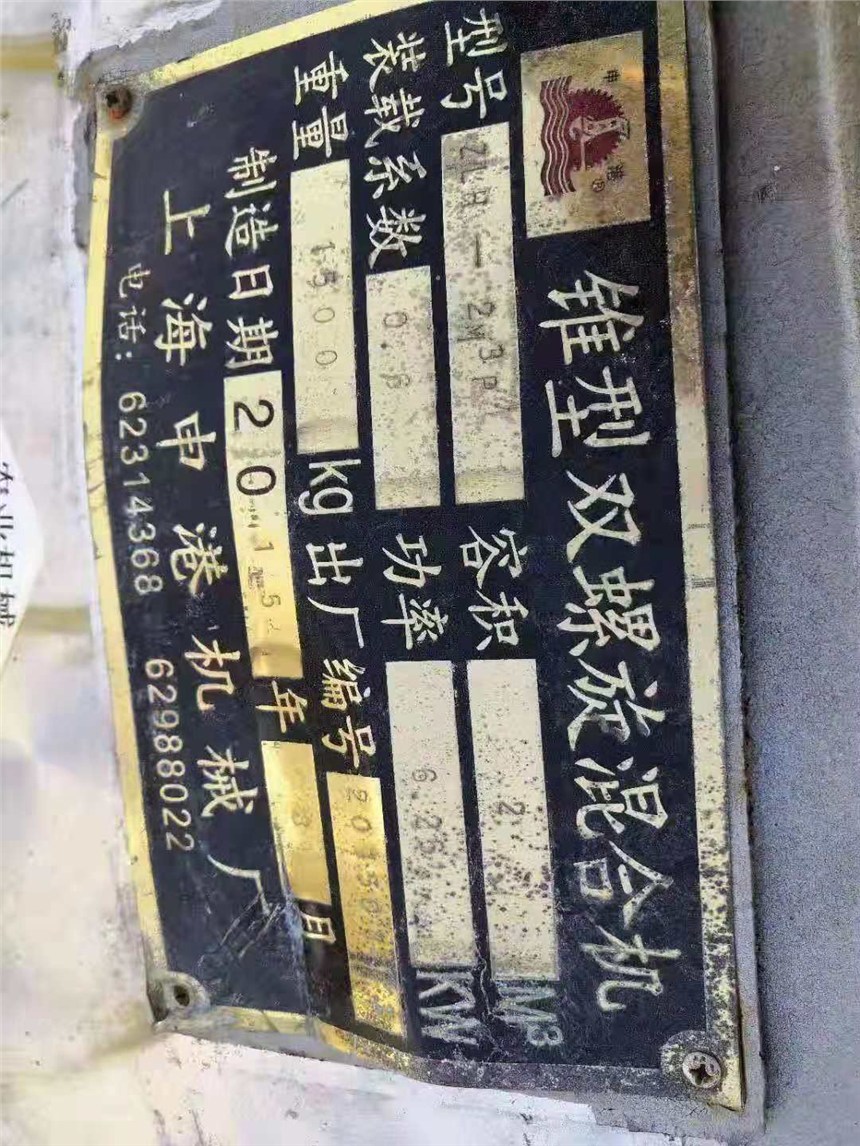 申港®
锥型双螺旋混合机
型号 ZLH-2M³P 容积 2 M³
装载系数 0.6 功率 6.25 KW
重量 1500 kg 出厂编号
制造日期 2015年 8月
上海申港机械厂
电话: 62314368 62988022